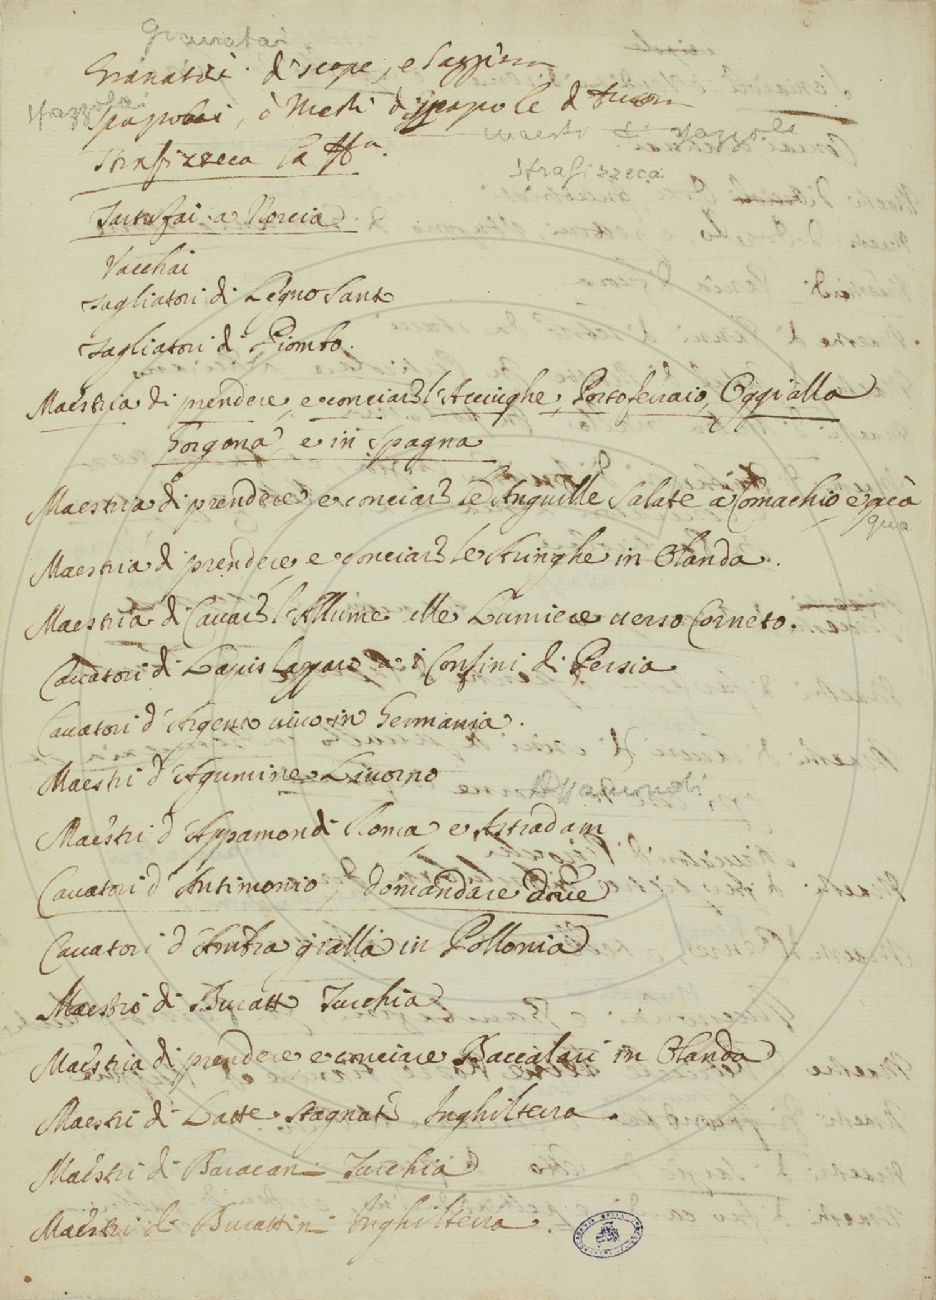 Granatai
Granatai di scope, e Saggina
Stazzolai
Spazzolai, ò Mestri di Spazzole di
Maestri di Spazzole
Strafizzeca la
Strafizzeca
Tartufai a Norcia
Vacchai
Tagliatori di Legno Santo
Tagliatori di Piombo.
Maestria di prendere, e conciare l'Acciughe, Portoferraio, Oggi alla
Gorgona, e in Spagna
Maestria di prendere, e conciare le Anguille Salate a Comachio e
qua
Maestria di prendere e conciare le Aringhe in Olanda.
Maestria di Cavare l'Allume alle Lumiere verso Corneto.
Cavatori di Lapis lazzaro a i Confini di Persia
Cavatori d'Argento vivo in Germania.
Maestri d'Agumine Livorno
Appamondi
Maestri d'Appamondi Roma, e Astradam
Cavatori d'Antimonio, domandare dove
Cavatori d'Ambra gialla in Pollonia
Maestri di Buratti Turchia
Maestria di prendere, e conciare Baccalari in Olanda
Maestri di Latte stagnate Inghilterra.
Maestri di Baracani Turchia
Maestri di Burattini Inghilterra.